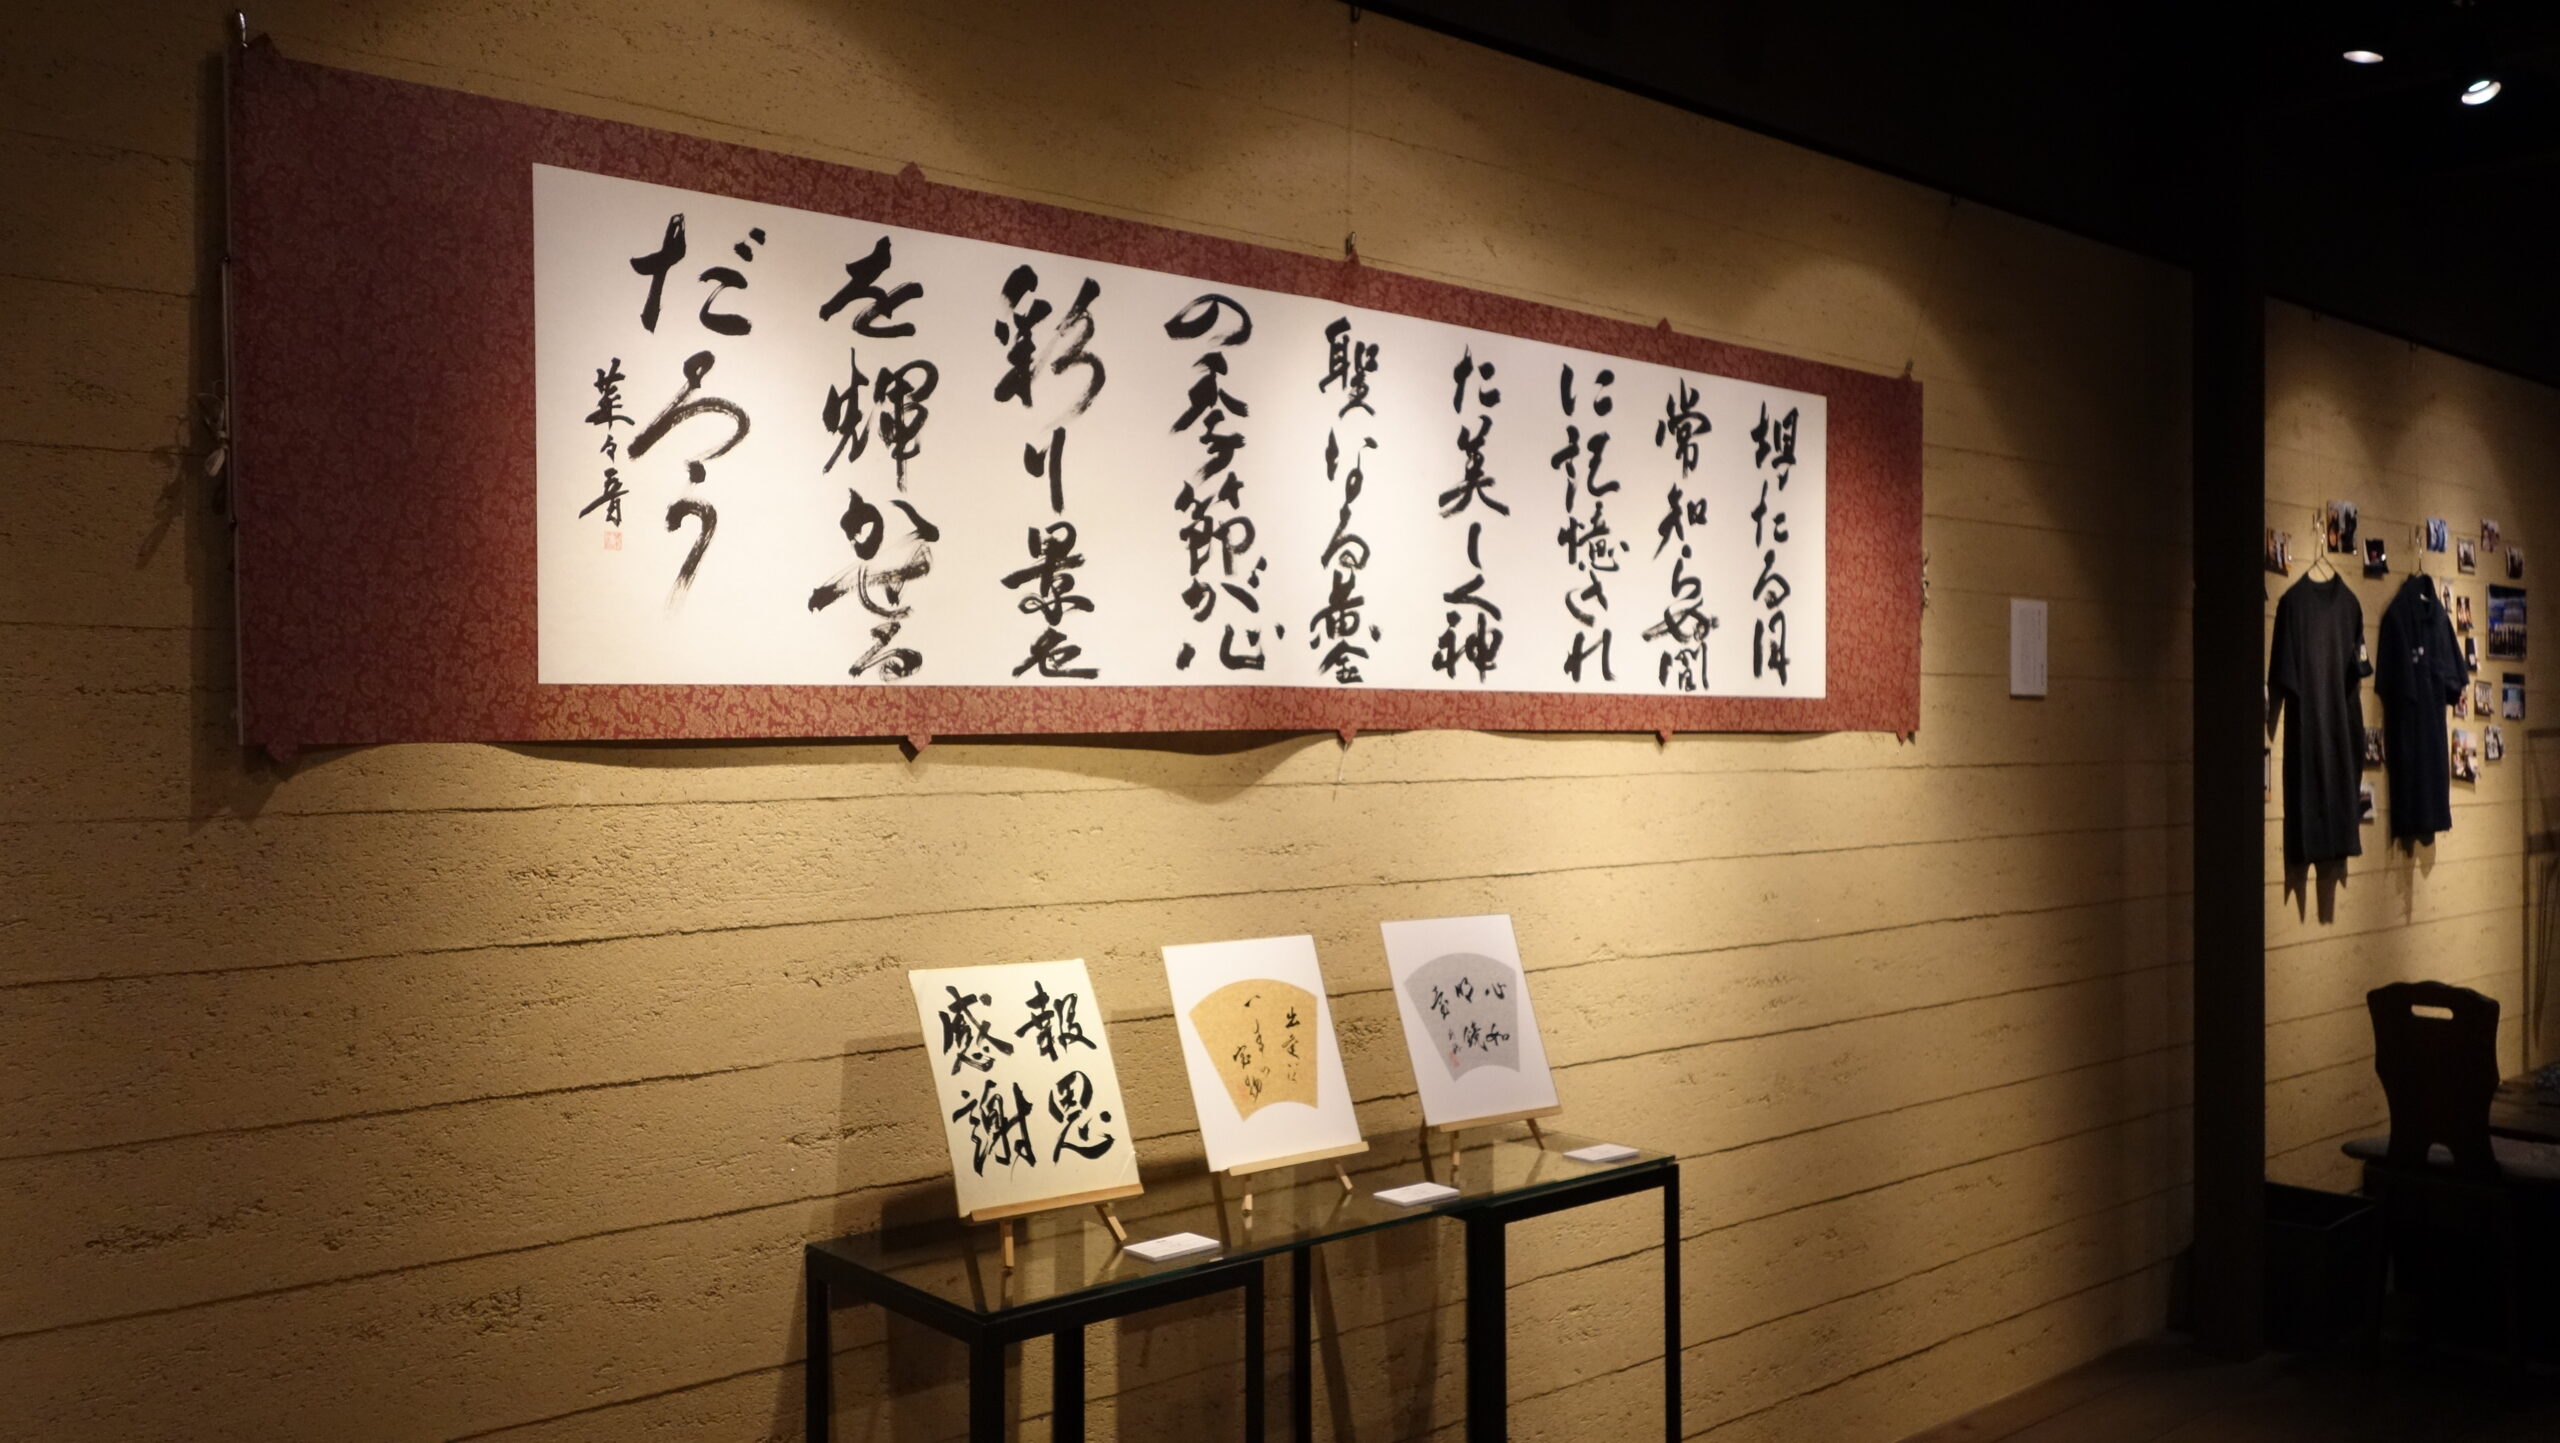 坦たる日
常知らぬ間
に記憶され
た美しく神
聖なる黄金
の季節が心
彩り景色
を輝かせる
だろう
菜々音
報恩
感謝
出逢いは
人生の
宝物
心如
明鏡